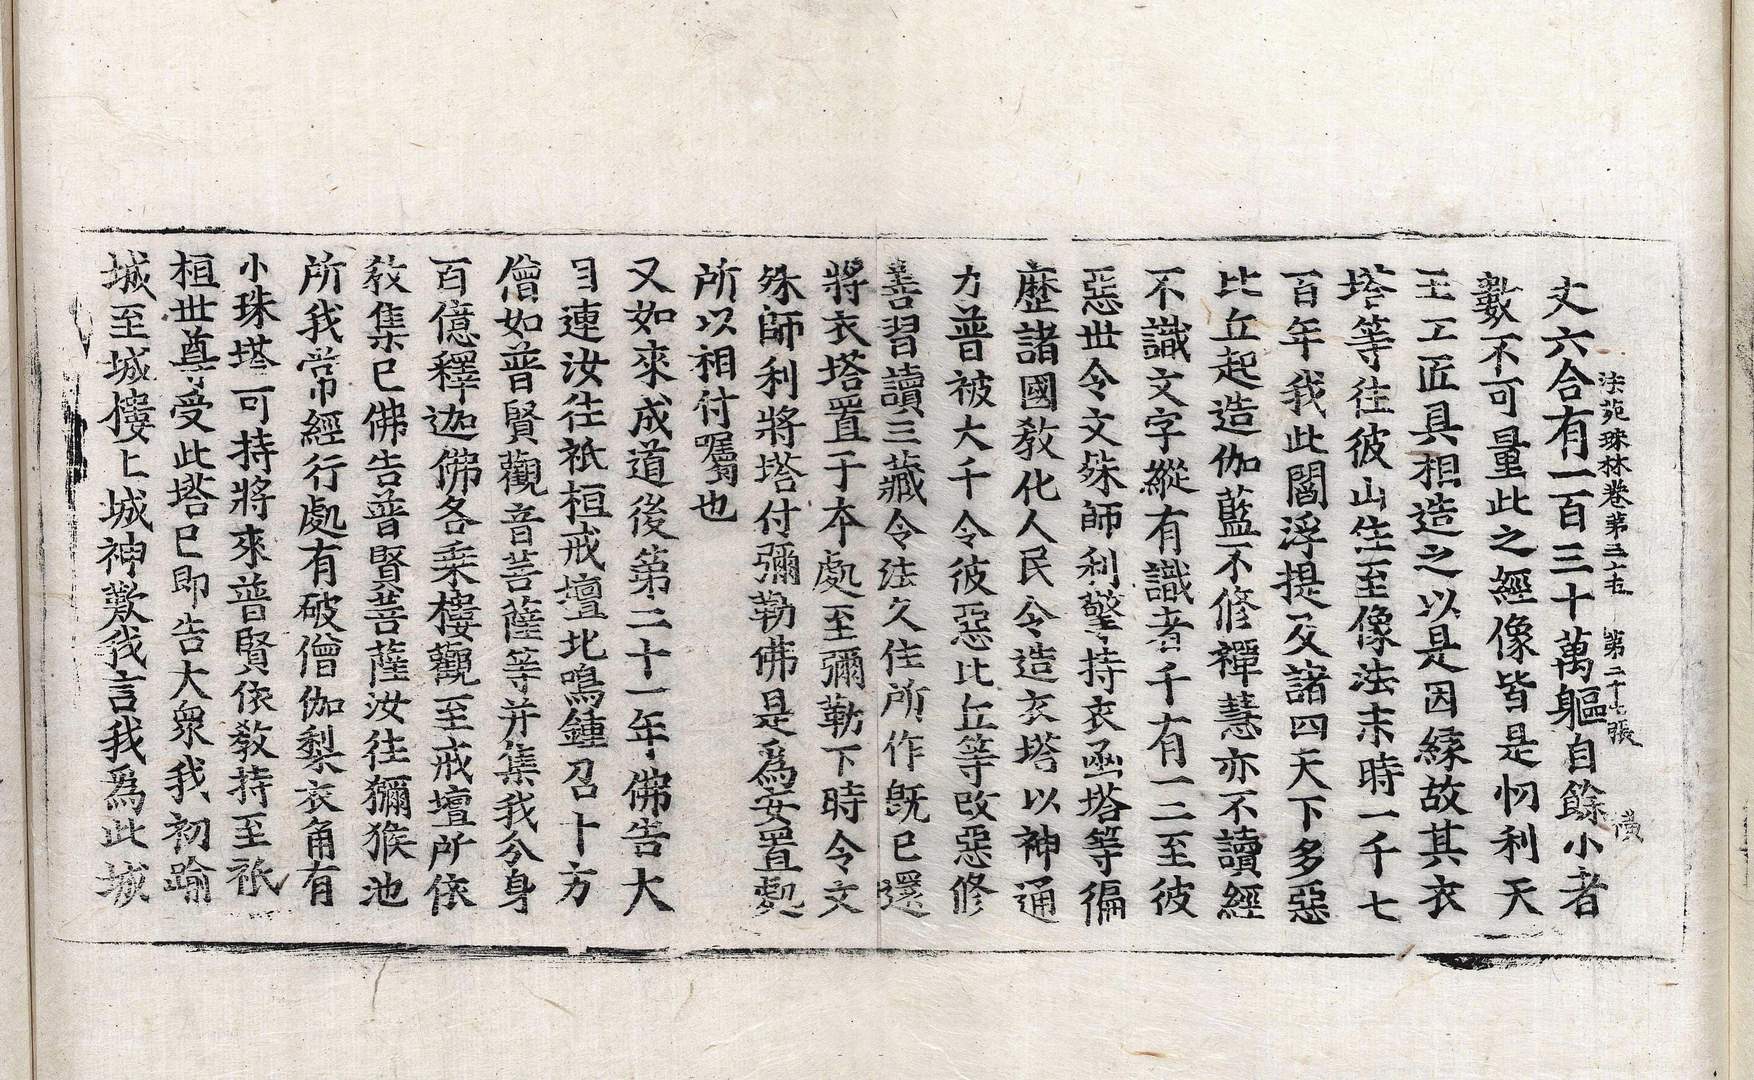 法苑珠林卷第三十五 第二十七張 横
丈六合有一百三十萬軀自餘小者
數不可量此之經像皆是忉利天
王工匠具相造之以是因緣故其衣
塔等往彼山住至像法末時一千七
百年我此閻浮提及諸四天下多惡
比丘起造伽藍不修禪慧亦不讀經
不識文字縱有識者千有一二至彼
惡世令文殊師利擎持衣函塔等徧
歷諸國教化人民令造衣塔以神通
力普被大千令彼惡比丘等改惡修
善習讀三藏令法久住所作旣已還
將衣塔置于本處至彌勒下時令文
殊師利將塔付彌勒佛是爲安置處
所以相付囑也
又如來成道後第二十一年佛告大
目連汝往祇桓戒壇北鳴鍾召十方
僧如普賢觀音菩薩等并集我分身
百億釋迦佛各乘樓觀至戒壇所依
教集已佛告普賢菩薩汝往獼猴池
所我常經行處有破僧伽梨衣角有
小珠塔可持將來普賢依教持至祇
桓世尊受此塔已即告大衆我初踰
城至城樓上城神歎我言我爲此城